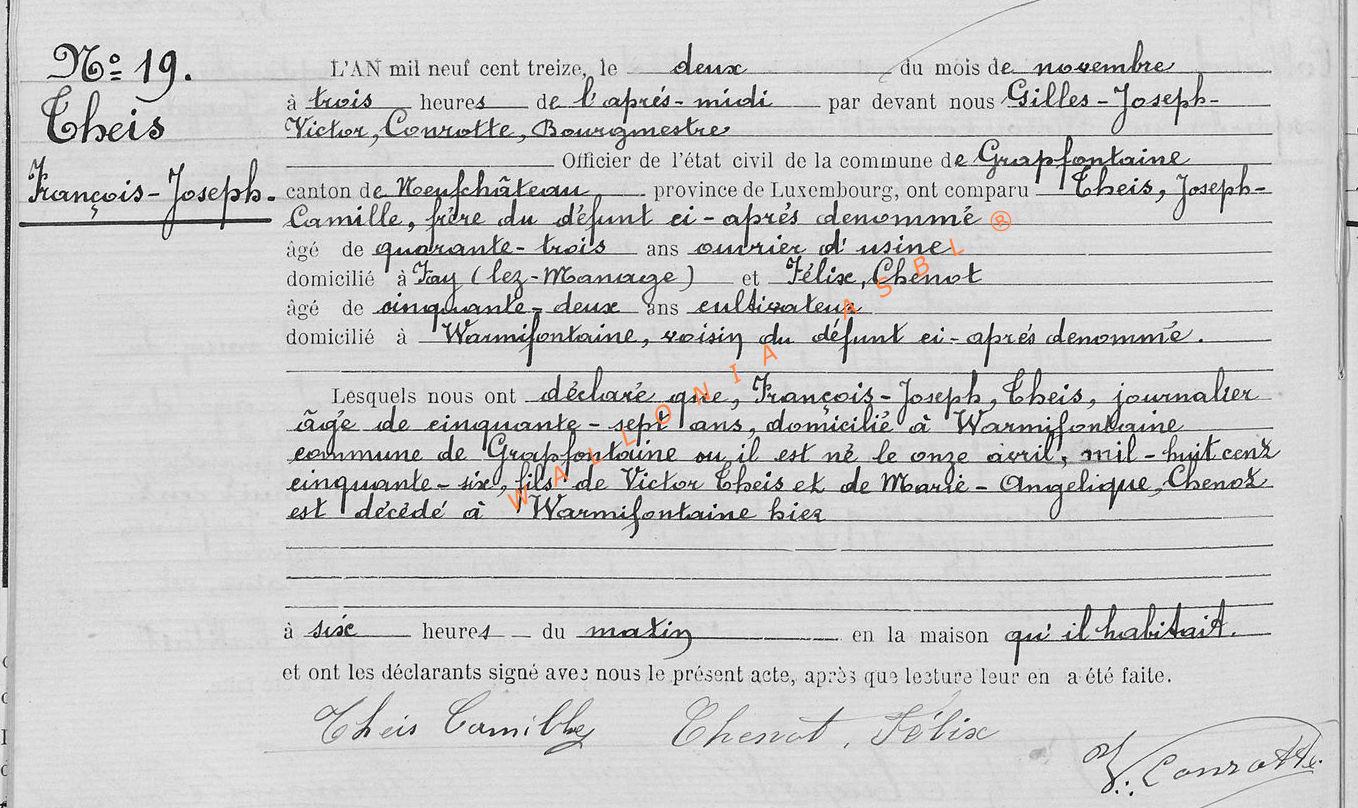 Nº 19.
Theis
François-Joseph.
L'AN mil neuf cent treize, le deux du mois de novembre
à trois heures de l'aprés-midi par devant nous Gilles-Joseph-
Victor, Conrotte, Bourgmestre
Officier de l'état civil de la commune de Grapfontaine
canton de Neufchâteau province de Luxembourg, ont comparu Theis, Joseph-
Camille, frère du défunt ci-aprés denommé
âgé de quarante-trois ans ouvrier d'usine
domicilié à Fay (lez-Manage) et Félix, Chenot
âgé de cinquante-deux ans cultivateur
domicilié à Warmifontaine, voisin du défunt ci-aprés denommé.
Lesquels nous ont déclaré que, François-Joseph, Theis, journalier
âgé de cinquante-sept ans, domicilié à Warmifontaine
commune de Grapfontaine ou il est né le onze avril, mil-huit cent
cinquante-six, fils de Victor Theis et de Marie-Angelique, Chenot
est décédé à Warmifontaine hier
à six heures du matin en la maison qu'il habitait.
et ont les déclarants signé avec nous le présent acte, après que lecture leur en a été faite.
Theis Camille Chenot, Félix
V. Conrotte.
WALLONIA ASBL ®